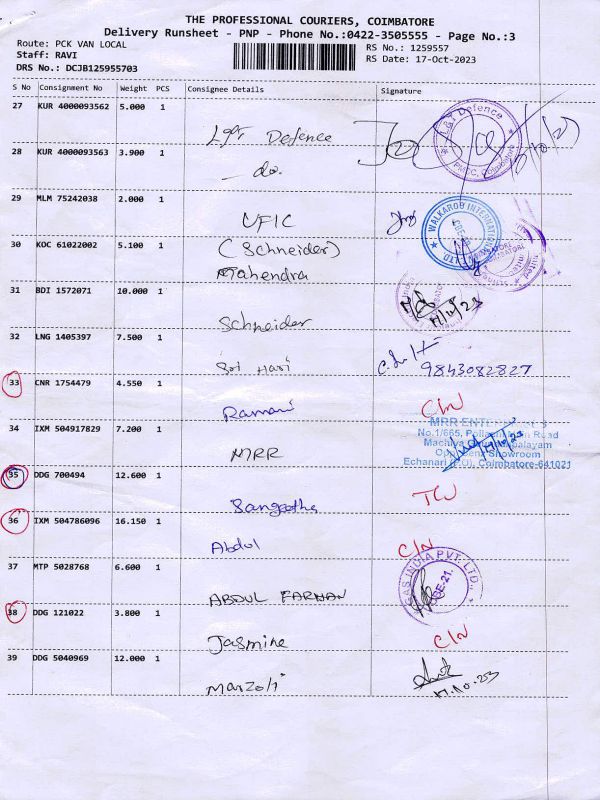 THE PROFESSIONAL COURIERS, COIMBATORE
Delivery Runsheet - PNP - Phone No.:0422-3505555 - Page No.:3
Route: PCK VAN LOCAL
Staff: RAVI
DRS No.: DCJB125955703
RS No.: 1259557
RS Date: 17-Oct-2023
S No Consignment No Weight PCS Consignee Details Signature
27 KUR 4000093562 5.000 1
L&T Defence
L&T Defence
PMPC, Coimbatore
28 KUR 4000093563 3.900 1
do.
29 MLM 75242038 2.000 1
UFIC
WALKAROO INTERNATIONAL LTD
30 KOC 61022002 5.100 1
(Schneider)
Mahendra
31 BDI 1572071 10.000 1
Schneider
32 LNG 1405397 7.500 1
Sri Hari
9843082827
33 CNR 1754479 4.550 1
Ramani C/N
34 IXM 504917829 7.200 1
MRR
MRR
No.1/665, Road
Showroom
Echanari Coimbatore-641021
35 DDG 700494 12.600 1
Sangeetha
36 IXM 504786096 16.150 1
Abdul C/N
37 MTP 5028768 6.600 1
ABDUL FARMAN
GAS INDIA PVT. LTD.
CBE-21.
38 DDG 121022 3.800 1
Jasmine C/N
39 DDG 5040969 12.000 1
Marzoli
17.10.23